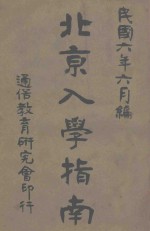 民國六年六月編
北京入學指南
通俗教育研究會印行